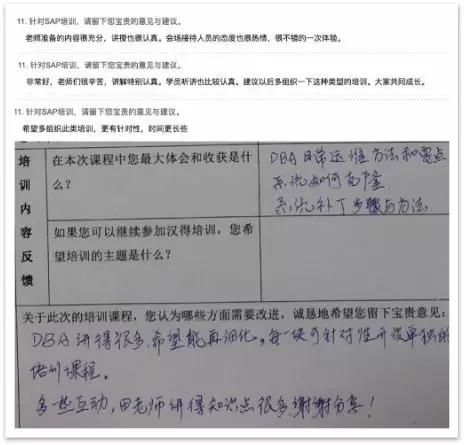 11. 针对SAP培训，请留下您宝贵的意见与建议。
老师准备的内容很充分，讲授也很认真。会场接待人员的态度也很热情，很不错的一次体验。
11. 针对SAP培训，请留下您宝贵的意见与建议。
非常好，老师们很辛苦，讲解特别认真。学员听讲也比较认真。建议以后多组织一下这种类型的培训。大家共同成长。
11. 针对SAP培训，请留下您宝贵的意见与建议。
希望多组织此类培训，更有针对性，时间更长些
培训内容反馈
在本次课程中您最大体会和收获是什
么？
DBA日常运维方法和要点
系统如何克隆
系统补丁步骤与方法
如果您可以继续参加汉得培训，您希
望培训的主题是什么？
关于此次的培训课程，您认为哪些方面需要改进，诚恳地希望您留下宝贵意见：
DBA讲得很多，希望能再细化，每一块可针对性开设单独的
培训课程。
多些互动，田老师讲得知识点很多，谢谢分享！